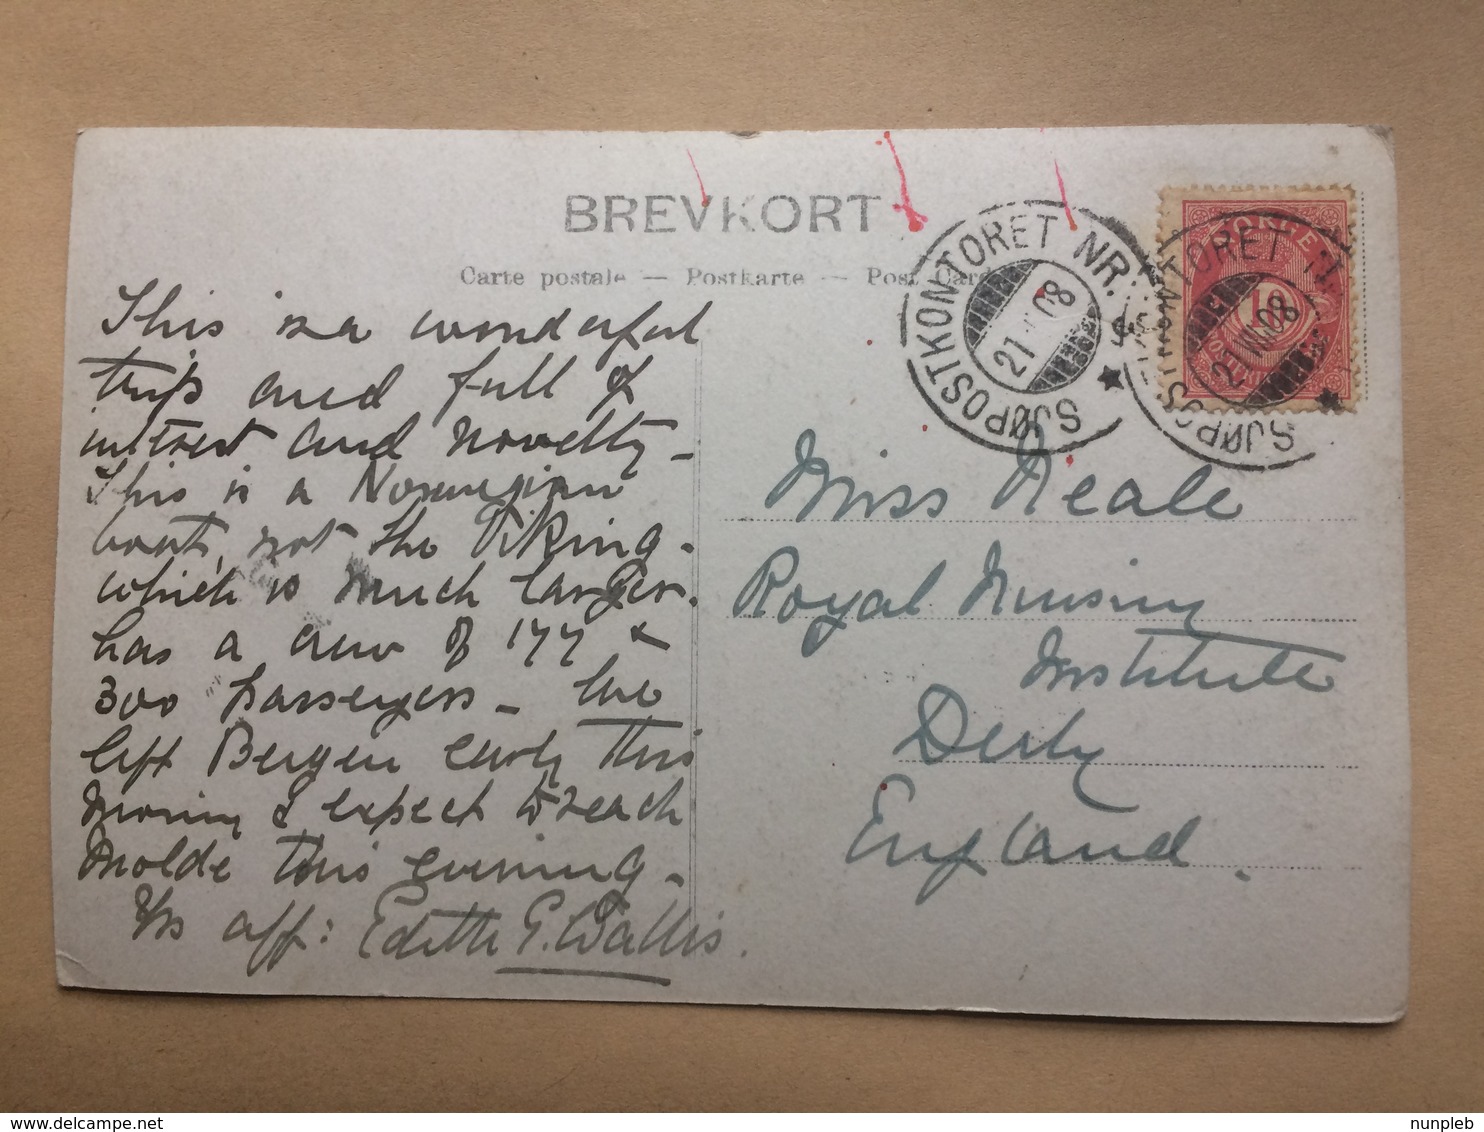 BREVKORT
Carte postale — Postkarte — Post Card
This is a wonderful
trip and full of
interest and novelty –
This is a Norwegian
boat, not the Viking –
which is much larger.
has a crew of 177 &
300 passengers – We
left Bergen early this
morning & expect to reach
Molde this evening –
Yrs aff: Edith G. Wallis.
SJØPOSTKONTORET NR.
21 08
SJØPOSTKONTORET N
21 VII 08
NORGE
10
Miss Neale
Royal Nursing
Institute
Derby
England.
delcampe.net
nunpleb